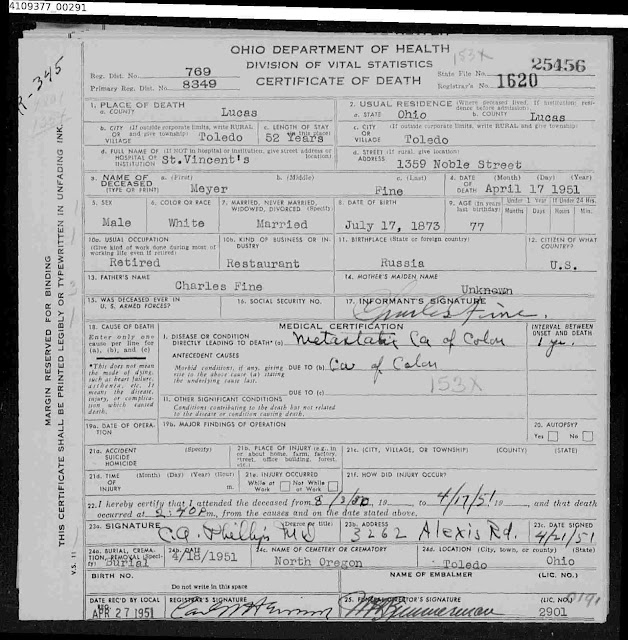 4109377_00291
OHIO DEPARTMENT OF HEALTH
DIVISION OF VITAL STATISTICS
CERTIFICATE OF DEATH
153X
R-345
Reg. Dist. No. 769
Primary Reg. Dist. No. 8349
State File No. 25456
Registrar's No. 1620
MARGIN RESERVED FOR BINDING
THIS CERTIFICATE SHALL BE PRINTED LEGIBLY OR TYPEWRITTEN IN UNFADING INK.
V.S. 11
1. PLACE OF DEATH
a. COUNTY Lucas
2. USUAL RESIDENCE (Where deceased lived. If institution: residence before admission).
a. STATE Ohio b. COUNTY Lucas
b. CITY (If outside corporate limits, write RURAL and give township) VILLAGE Toledo
c. LENGTH OF STAY (in this place) 52 Years
c. CITY (If outside corporate limits, write RURAL and give township) VILLAGE Toledo
d. FULL NAME OF (If NOT in hospital or institution, give street address or location) HOSPITAL OR INSTITUTION St.Vincent's
d. STREET (If rural, give location) ADDRESS 1359 Noble Street
3. NAME OF DECEASED (TYPE OR PRINT)
a. (First) Meyer b. (Middle) c. (Last) Fine
4. DATE OF DEATH (Month) (Day) (Year) April 17 1951
5. SEX Male
6. COLOR OR RACE White
7. MARRIED, NEVER MARRIED, WIDOWED, DIVORCED (Specify) Married
8. DATE OF BIRTH July 17, 1873
9. AGE (In years last birthday) 77
Under 1 Year Months Days
If Under 24 Hrs. Hours Min.
10a. USUAL OCCUPATION (Give kind of work done during most of working life even if retired) Retired
10b. KIND OF BUSINESS OR INDUSTRY Restaurant
11. BIRTHPLACE (State or foreign country) Russia
12. CITIZEN OF WHAT COUNTRY? U.S.
13. FATHER'S NAME Charles Fine
14. MOTHER'S MAIDEN NAME Unknown
15. WAS DECEASED EVER IN U. S. ARMED FORCES?
16. SOCIAL SECURITY NO.
17. INFORMANT'S SIGNATURE Charles Fine.
18. CAUSE OF DEATH
Enter only one cause per line for (a), (b), and (c)
*This does not mean the mode of dying, such as heart failure, asthenia, etc. It means the disease, injury, or complication which caused death.
MEDICAL CERTIFICATION
INTERVAL BETWEEN ONSET AND DEATH
I. DISEASE OR CONDITION DIRECTLY LEADING TO DEATH* (a) Metastatic Ca of Colon 1 yr.
ANTECEDENT CAUSES
Morbid conditions, if any, giving rise to the above cause (a) stating the underlying cause last.
DUE TO (b) Ca of Colon
153X
DUE TO (c)
II. OTHER SIGNIFICANT CONDITIONS
Conditions contributing to the death but not related to the disease or condition causing death.
19a. DATE OF OPERATION
19b. MAJOR FINDINGS OF OPERATION
20. AUTOPSY?
Yes No
21a. ACCIDENT SUICIDE HOMICIDE (Specify)
21b. PLACE OF INJURY (e.g., in or about home, farm, factory, street, office building, forest, etc.)
21c. (CITY, VILLAGE, OR TOWNSHIP) (COUNTY) (STATE)
21d. TIME OF INJURY (Month) (Day) (Year) (Hour) m.
21e. INJURY OCCURRED
While at Work Not While at Work
21f. HOW DID INJURY OCCUR?
22. I hereby certify that I attended the deceased from 8/3/50, 19 to 4/17/51, 19 and that death
occurred at 2:40 P m., from the causes and on the date stated above.
23a. SIGNATURE (Degree or title) C.A. Phillips MD
23b. ADDRESS 3262 Alexis Rd.
23c. DATE SIGNED 4/21/51
24a. BURIAL, CREMATION, REMOVAL (Specify) Burial
24b. DATE 4/18/1951
24c. NAME OF CEMETERY OR CREMATORY North Oregon
24d. LOCATION (City, town, or county) (State) Toledo Ohio
BIRTH NO.
Do not write in this space
NAME OF EMBALMER (LIC. NO.)
DATE REC'D BY LOCAL REG. APR 27 1951
REGISTRAR'S SIGNATURE
25. FUNERAL DIRECTOR (LIC. NO.)
2901